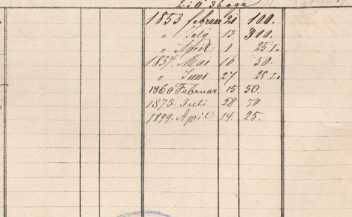 1853 februar 20 100.
" July 13 900.
" April 1 25
1857. Mai 16 50.
" Juni 27 25
1860 Februar 15 50.
1875. Juli 28 50
1899. April 14. 25.